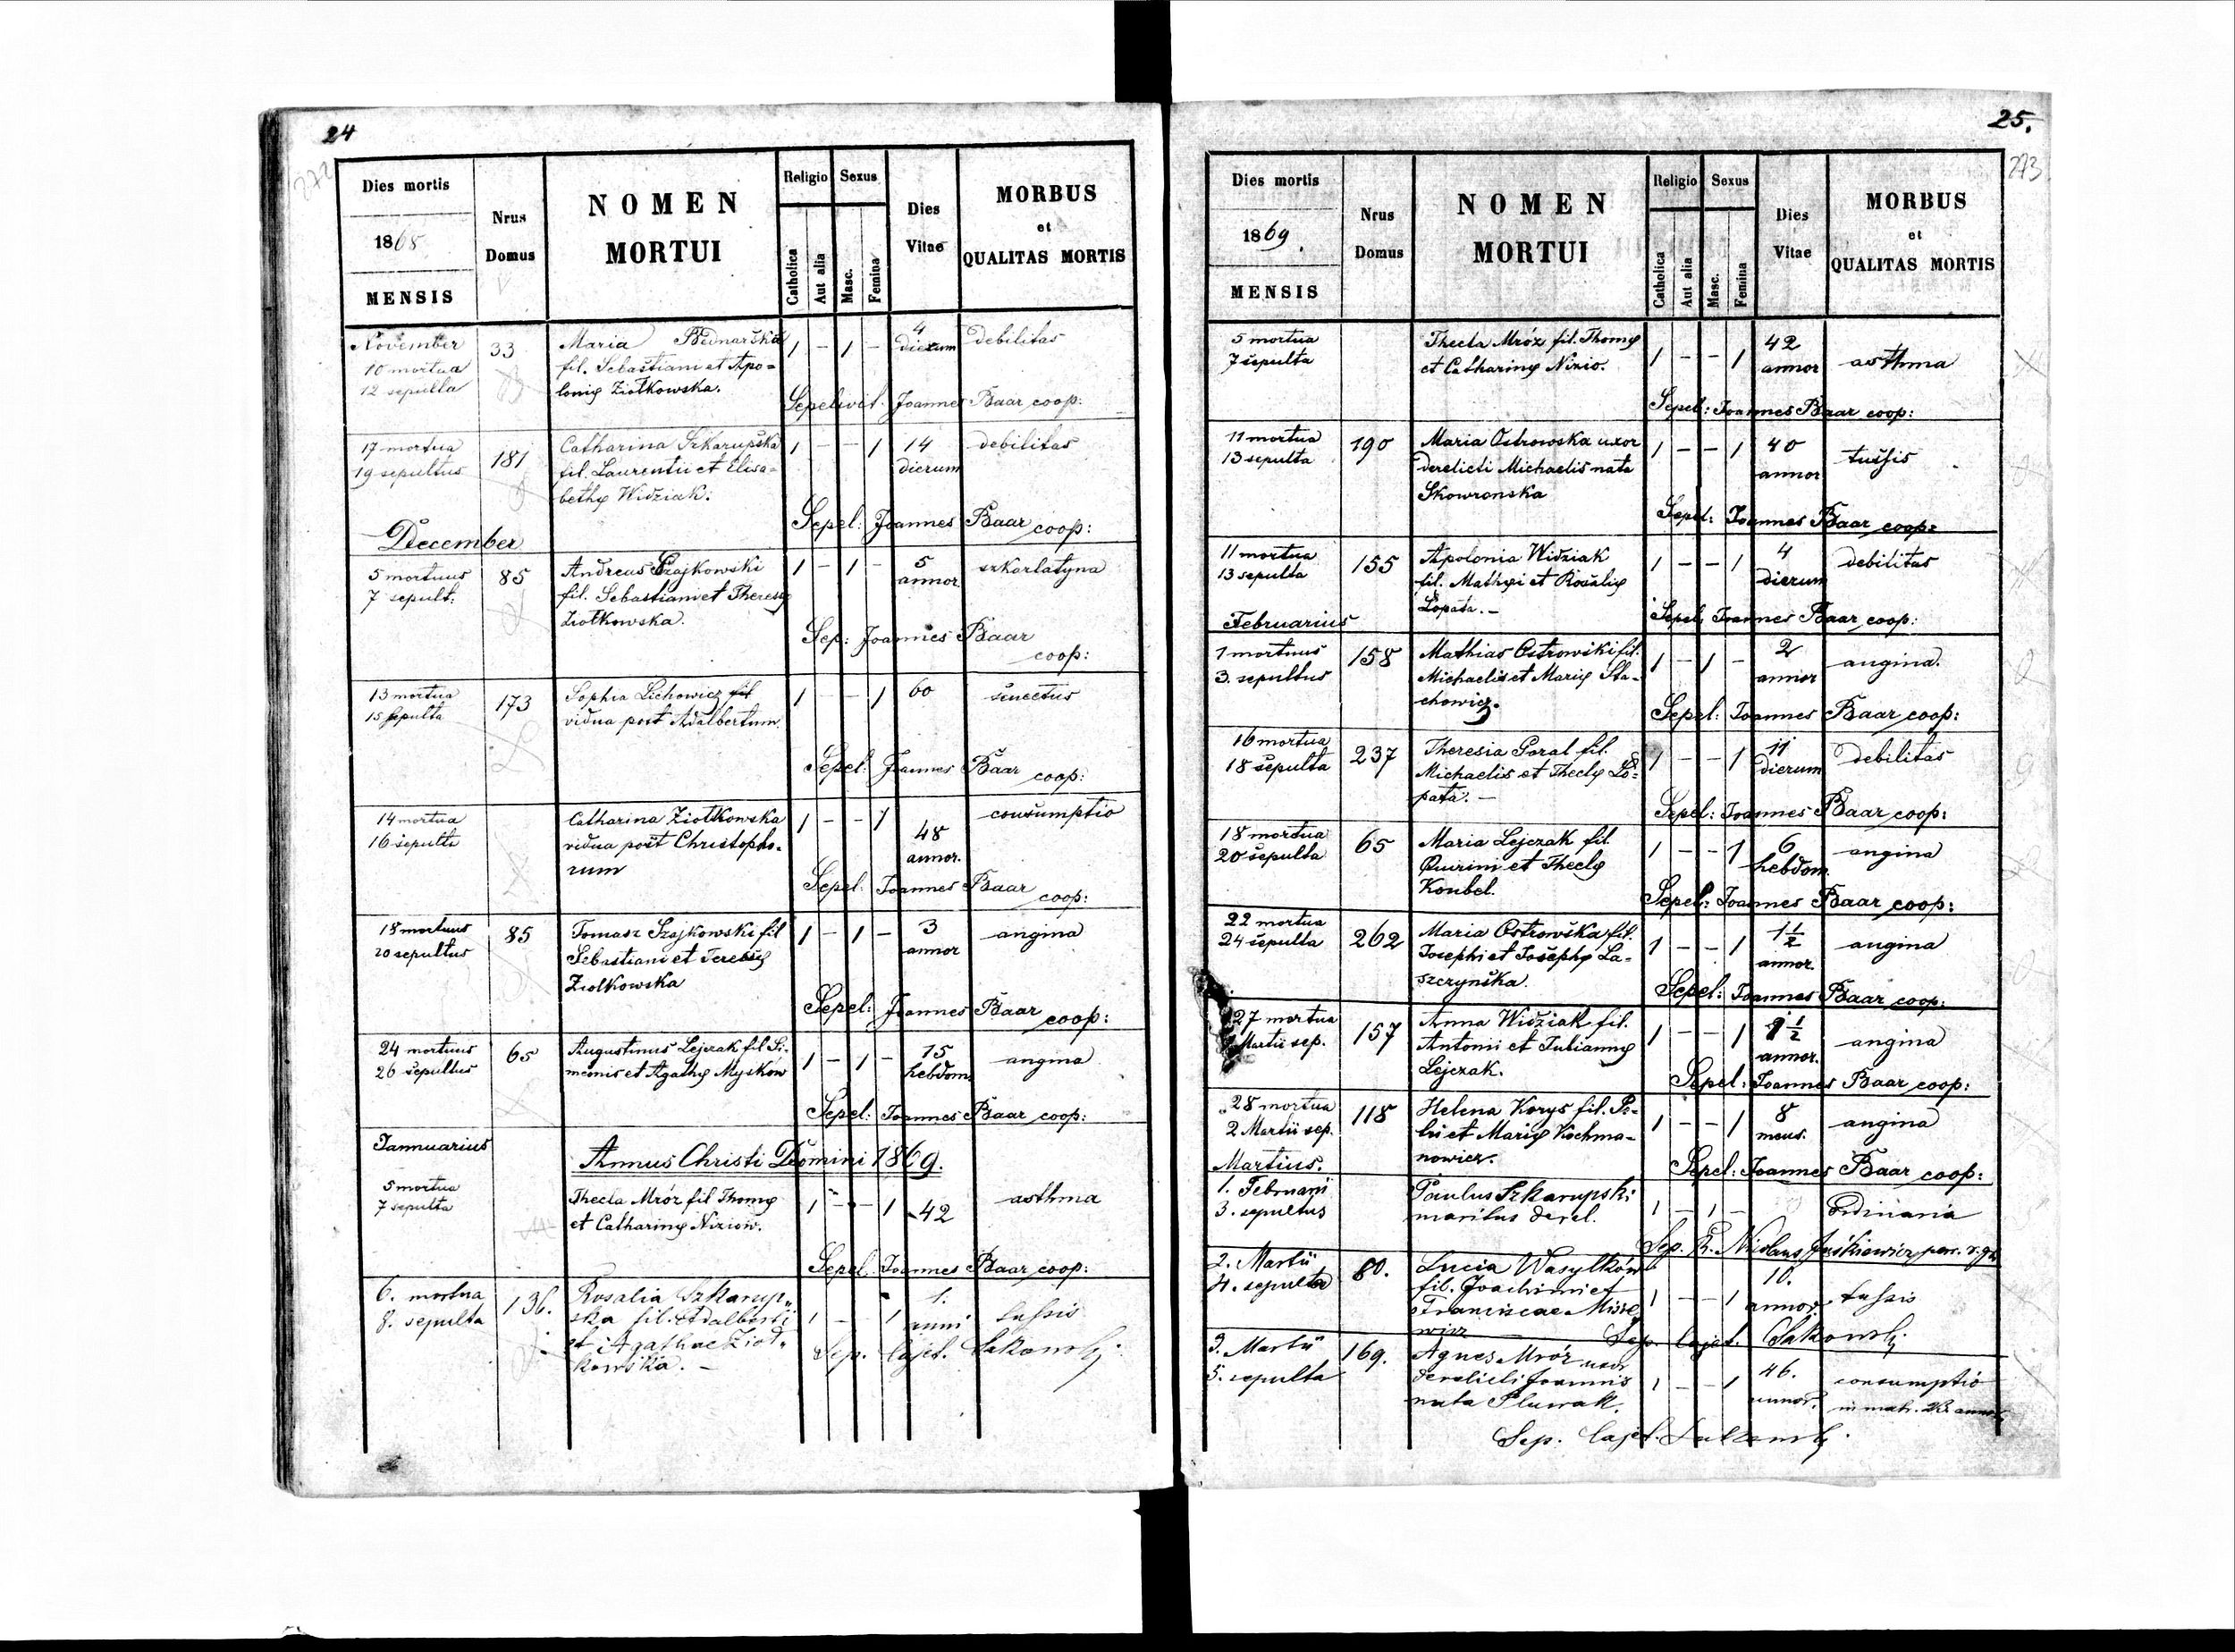 24
272
Dies mortis
1868
MENSIS
Nrus
Domus
NOMEN
MORTUI
Religio
Sexus
Catholica
Aut alia
Masc.
Femina
Dies
Vitae
MORBUS
et
QUALITAS MORTIS
November
10 mortua
12 sepulta
33
Maria Bednarska
fil. Sebastiani et Apo-
lonię Ziołkowska.
1 - 1 -
4
dierum
debilitas
Sepelivit. Joannes Baar coop:
17 mortua
19 sepultus
181
Catharina Szkarupska
fil. Laurentii et Elisa-
bethę Widziak.
1 - - 1
14
dierum
debilitas
Sepel: Joannes Baar coop:
December
5 mortuus
7 sepult:
85
Andreas Szajkowski
fil. Sebastiani et Theresę
Ziołkowska.
1 - 1 -
5
annor
szkarlatyna
Sep: Joannes Baar
coop:
13 mortua
15 sepulta
173
Sophia Lichowicz fil
vidua post Adalbertum.
1 - - 1
60
senectus
Sepel: Joannes Baar coop:
14 mortua
16 sepulta
Catharina Ziołkowska
vidua post Christopho-
rum
1 - - 1
48
annor.
consumptio
Sepel: Joannes Baar
coop:
18 mortuus
20 sepultus
85
Tomasz Szajkowski fil
Sebastiani et Teresę
Ziolkowska
1 - 1 -
3
annor
angina
Sepel: Joannes Baar
coop:
24 mortuus
26 sepultus
65
Augustinus Lejczak fil Si-
meonis et Agathę Myśkow
1 - 1 -
15
hebdom
angina
Sepel: Joannes Baar coop:
Jannuarius
Annus Christi Domini 1869.
5 mortua
7 sepulta
Thecla Mróz fil Thomę
et Catharinę Niziow.
1 - - 1
42
asthma
Sepel: Joannes Baar coop:
6. mortua
8. sepulta
136.
Rosalia Szkarup„
ska fil. Adalberti
et Agathae Zioł„
kowska. -
1 - 1
1.
anni
tussis
Sep. Cajet. Sakowski
25.
273
Dies mortis
1869.
MENSIS
Nrus
Domus
NOMEN
MORTUI
Religio
Sexus
Catholica
Aut alia
Masc.
Femina
Dies
Vitae
MORBUS
et
QUALITAS MORTIS
5 mortua
7 sepulta
Thecla Mróz fil. Thomę
et Catharinę Nizio.
1 - - 1
42
annor
asthma
Sepel: Joannes Baar coop:
11 mortua
13 sepulta
190
Maria Ostrowska uxor
derelicti Michaelis nata
Skowronska
1 - - 1
40
annor
tussis
Sepel: Joannes Baar coop:
11 mortua
13 sepulta
155
Apolonia Widziak
fil. Mathęi et Rosalię
Łopata. -
1 - - 1
4
dierum
debilitas
Sepel: Joannes Baar coop:
Februarius
1 mortuus
3. sepultus
158
Mathias Ostrowski fil.
Michaelis et Marię Sta-
chowicz.
1 - 1 -
2
annor
angina.
Sepel: Joannes Baar coop:
16 mortua
18 sepulta
237
Theresia Goral fil.
Michaelis et Theclę Ło-
pata. -
1 - - 1
11
dierum
debilitas
Sepel: Joannes Baar coop:
18 mortua
20 sepulta
65
Maria Lejczak fil.
Quirini et Theclę
Koubel.
1 - - 1
6
hebdom
angina
Sepel: Joannes Baar coop:
22 mortua
24 sepulta
262
Maria Ostrowska fil.
Josephi et Josephę La-
szczynska.
1 - - 1
1 1/2
annor.
angina
Sepel: Joannes Baar coop:
27 mortua
Martii sep.
157
Anna Widziak fil.
Antonii et Juliannę
Lejczak.
1 - - 1
1 1/2
annor.
angina
Sepel: Joannes Baar coop:
28 mortua
2 Martii sep.
118
Helena Korys fil. Pe-
tri et Marię Kochma-
nowicz.
1 - - 1
8
mens.
angina
Sepel: Joannes Baar coop:
Martius.
1. Februarii
3. sepultus
Paulus Szkarupski
maritus derel.
1 - 1 -
Ordinaria
2. Martii
4. sepulta
80.
Lucia Wasylków
fil. Joachimi et
Franciscae Misie
wicz
1 - - 1
10.
annor.
tussis
Sep. Cajet. Sakowski
3. Martii
5. sepulta
169.
Agnes Mróz uxor
derelicti Joannis
nata Pluwak.
1 - - 1
46.
annor.
consumptio
in matr. 23 annos
Sep. Cajet. Sakowski